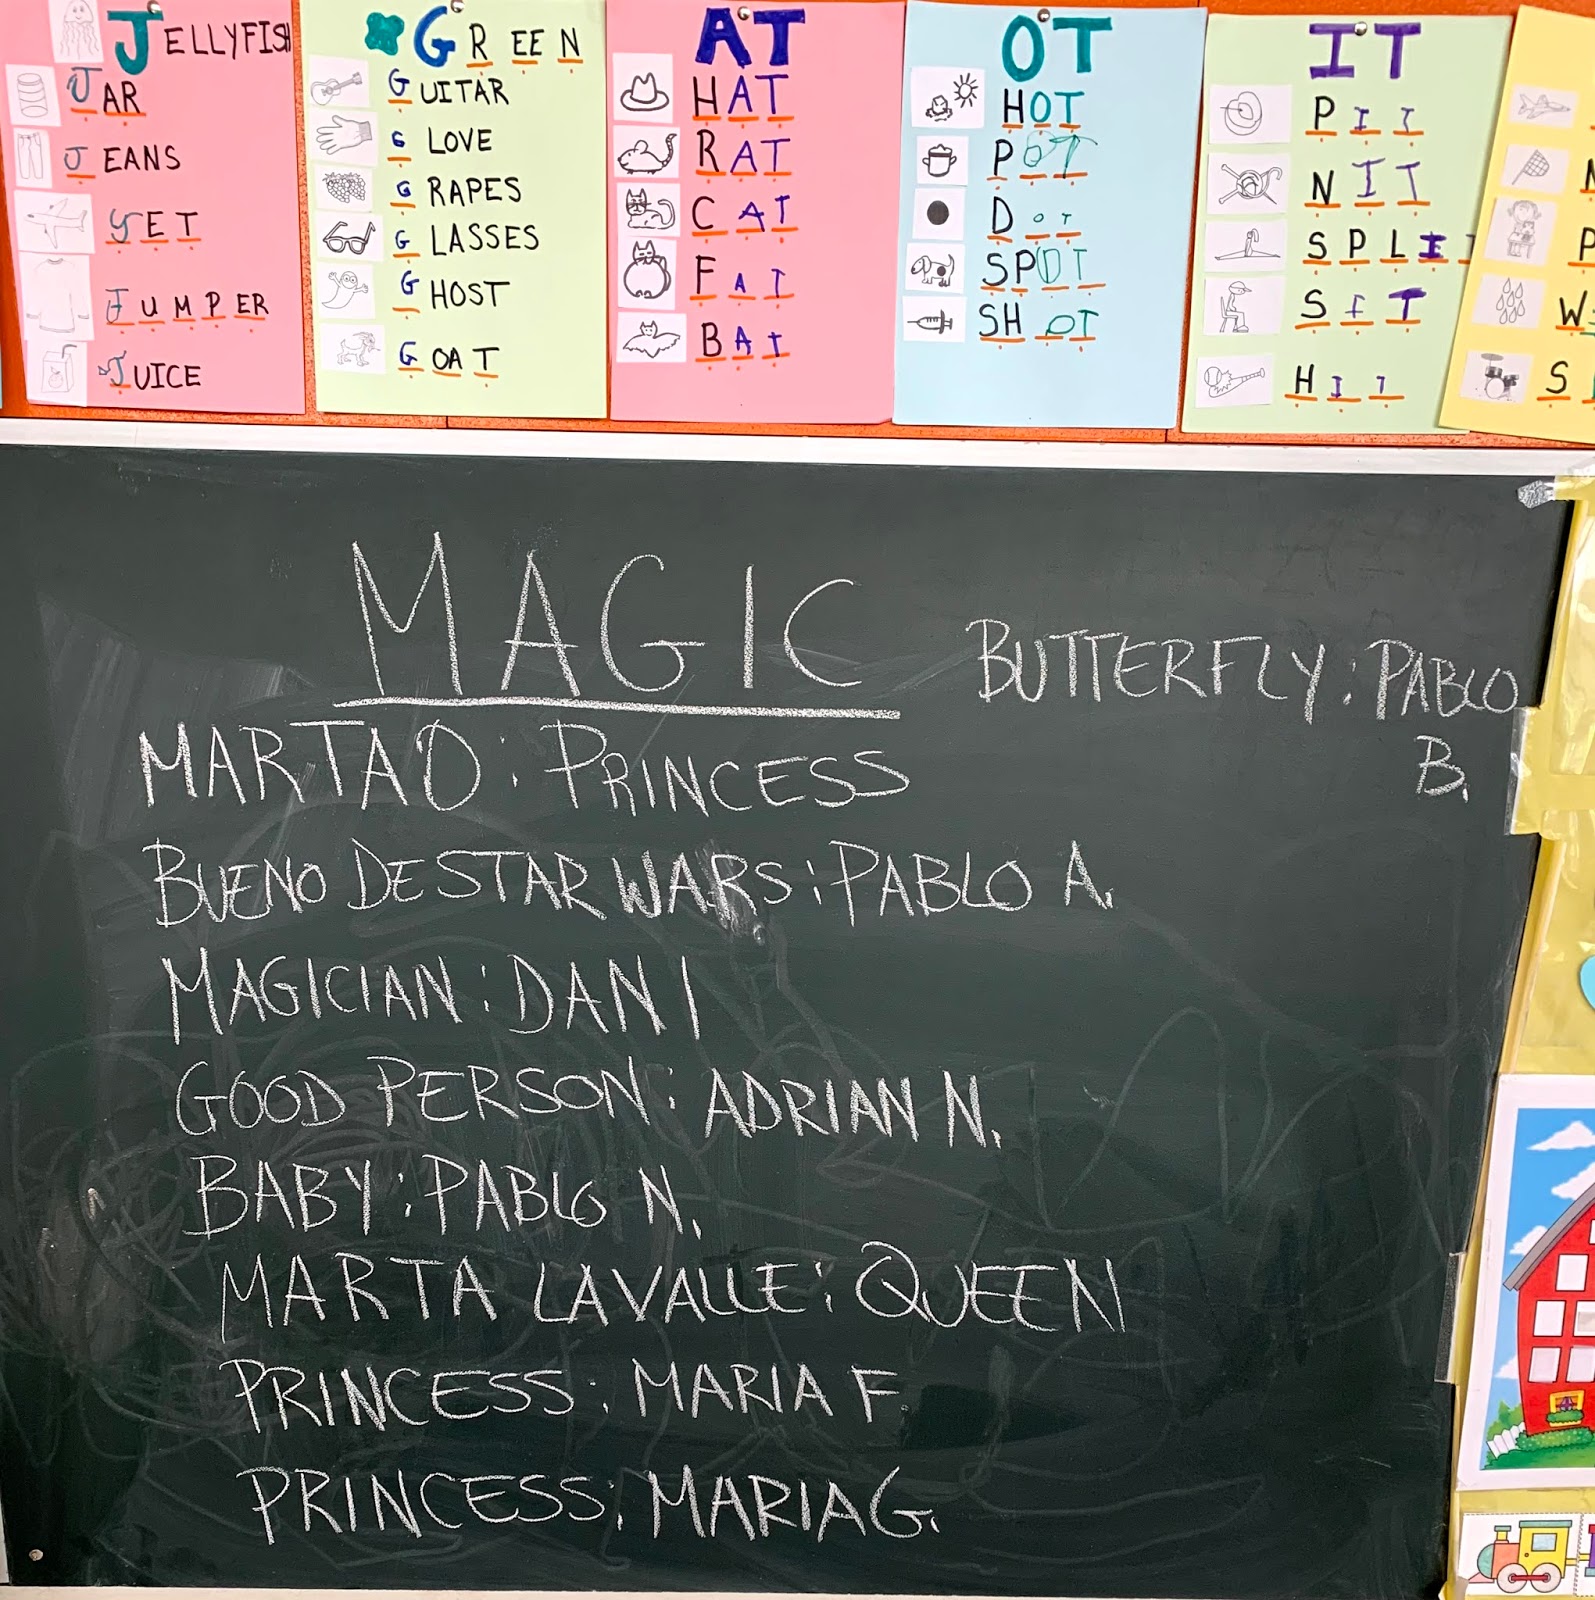 JELLYFISH
JAR
JEANS
JET
JUMPER
JUICE
GREEN
GUITAR
GLOVE
GRAPES
GLASSES
GHOST
GOAT
AT
HAT
RAT
CAT
FAT
BAT
OT
HOT
POT
DOT
SPOT
SHOT
IT
PIT
NIT
SPLIT
SIT
HIT
P
W
S
MAGIC
BUTTERFLY: PABLO
B.
MARTA O: PRINCESS
BUENO DE STAR WARS: PABLO A.
MAGICIAN: DANI
GOOD PERSON: ADRIAN N.
BABY: PABLO N.
MARTA LAVALLE: QUEEN
PRINCESS: MARIA F.
PRINCESS: MARIA G.